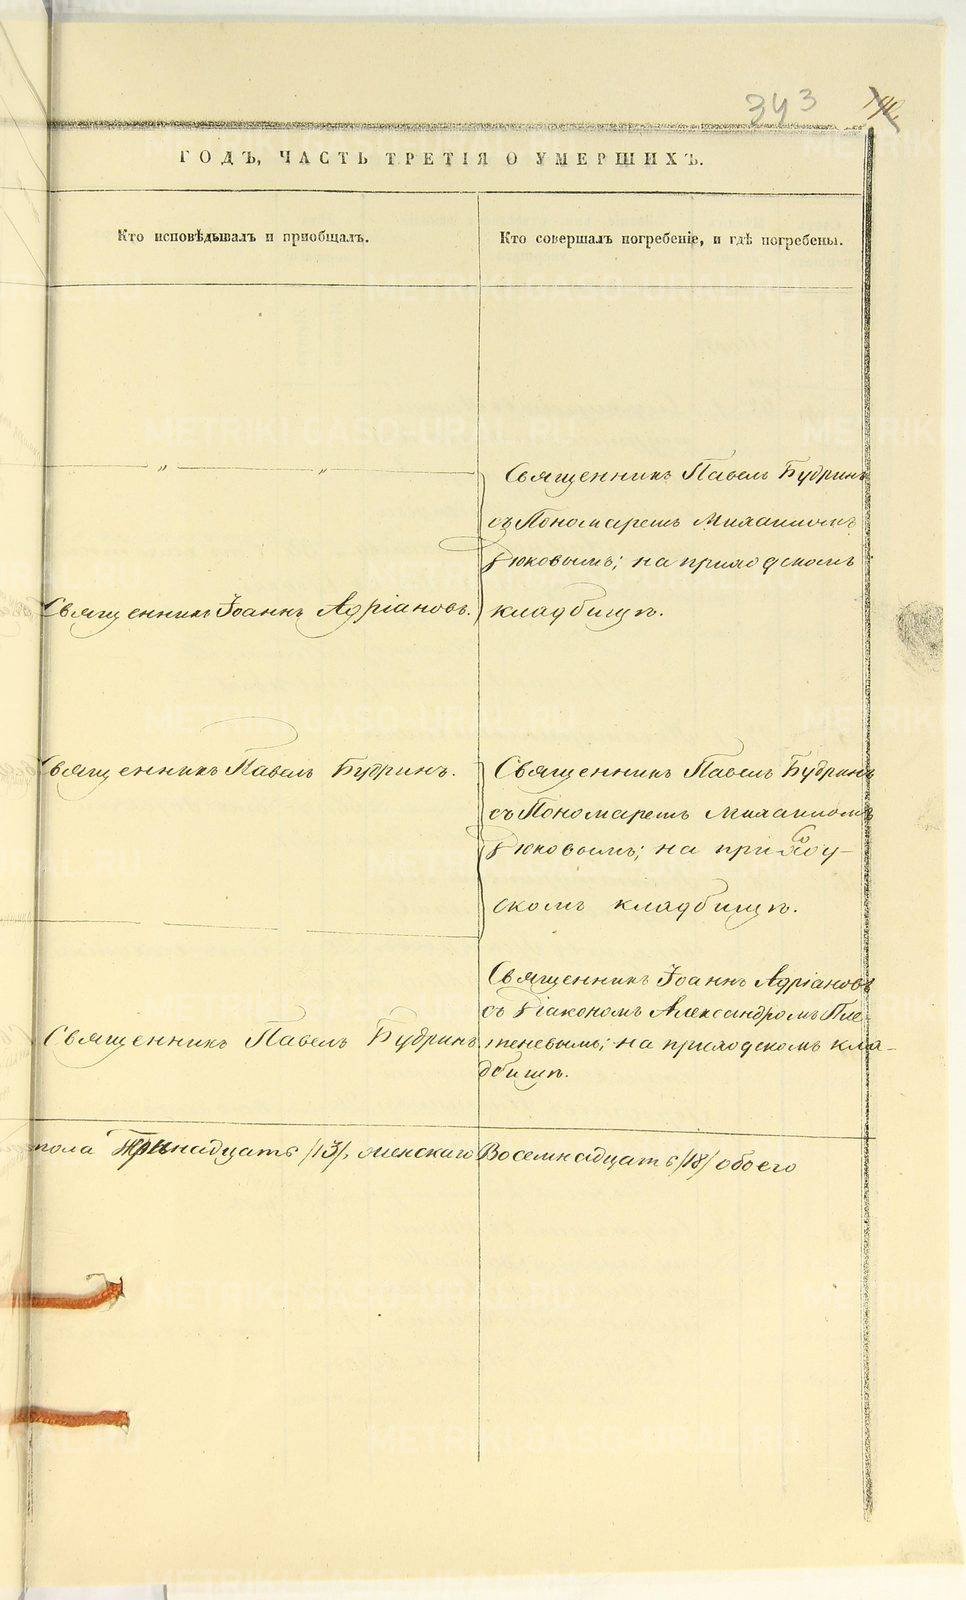 343
ГОДЪ, ЧАСТЬ ТРЕТІЯ О УМЕРШИХЪ.
Кто исповѣдывалъ и пріобщалъ.
Кто совершалъ погребеніе, и гдѣ погребены.
„ „
Священникъ Павелъ Будринъ
съ Пономаремъ Михаиломъ
на приходскомъ
Священникъ Іоаннъ Адріановъ.
кладбищѣ.
Священникъ Павелъ Будринъ.
Священникъ Павелъ Будринъ
съ Пономаремъ Михаиломъ
на приход-
скомъ кладбищѣ.
Священникъ Іоаннъ Адріановъ
съ Діакономъ Александромъ Пле-
Священникъ Павелъ Будринъ.
теневымъ; на приходскомъ кла-
дбищѣ.
пола Тринадцать /13/, женскаго Восемнадцать /18/ обоего
METRIKI.GASO-URAL.RU